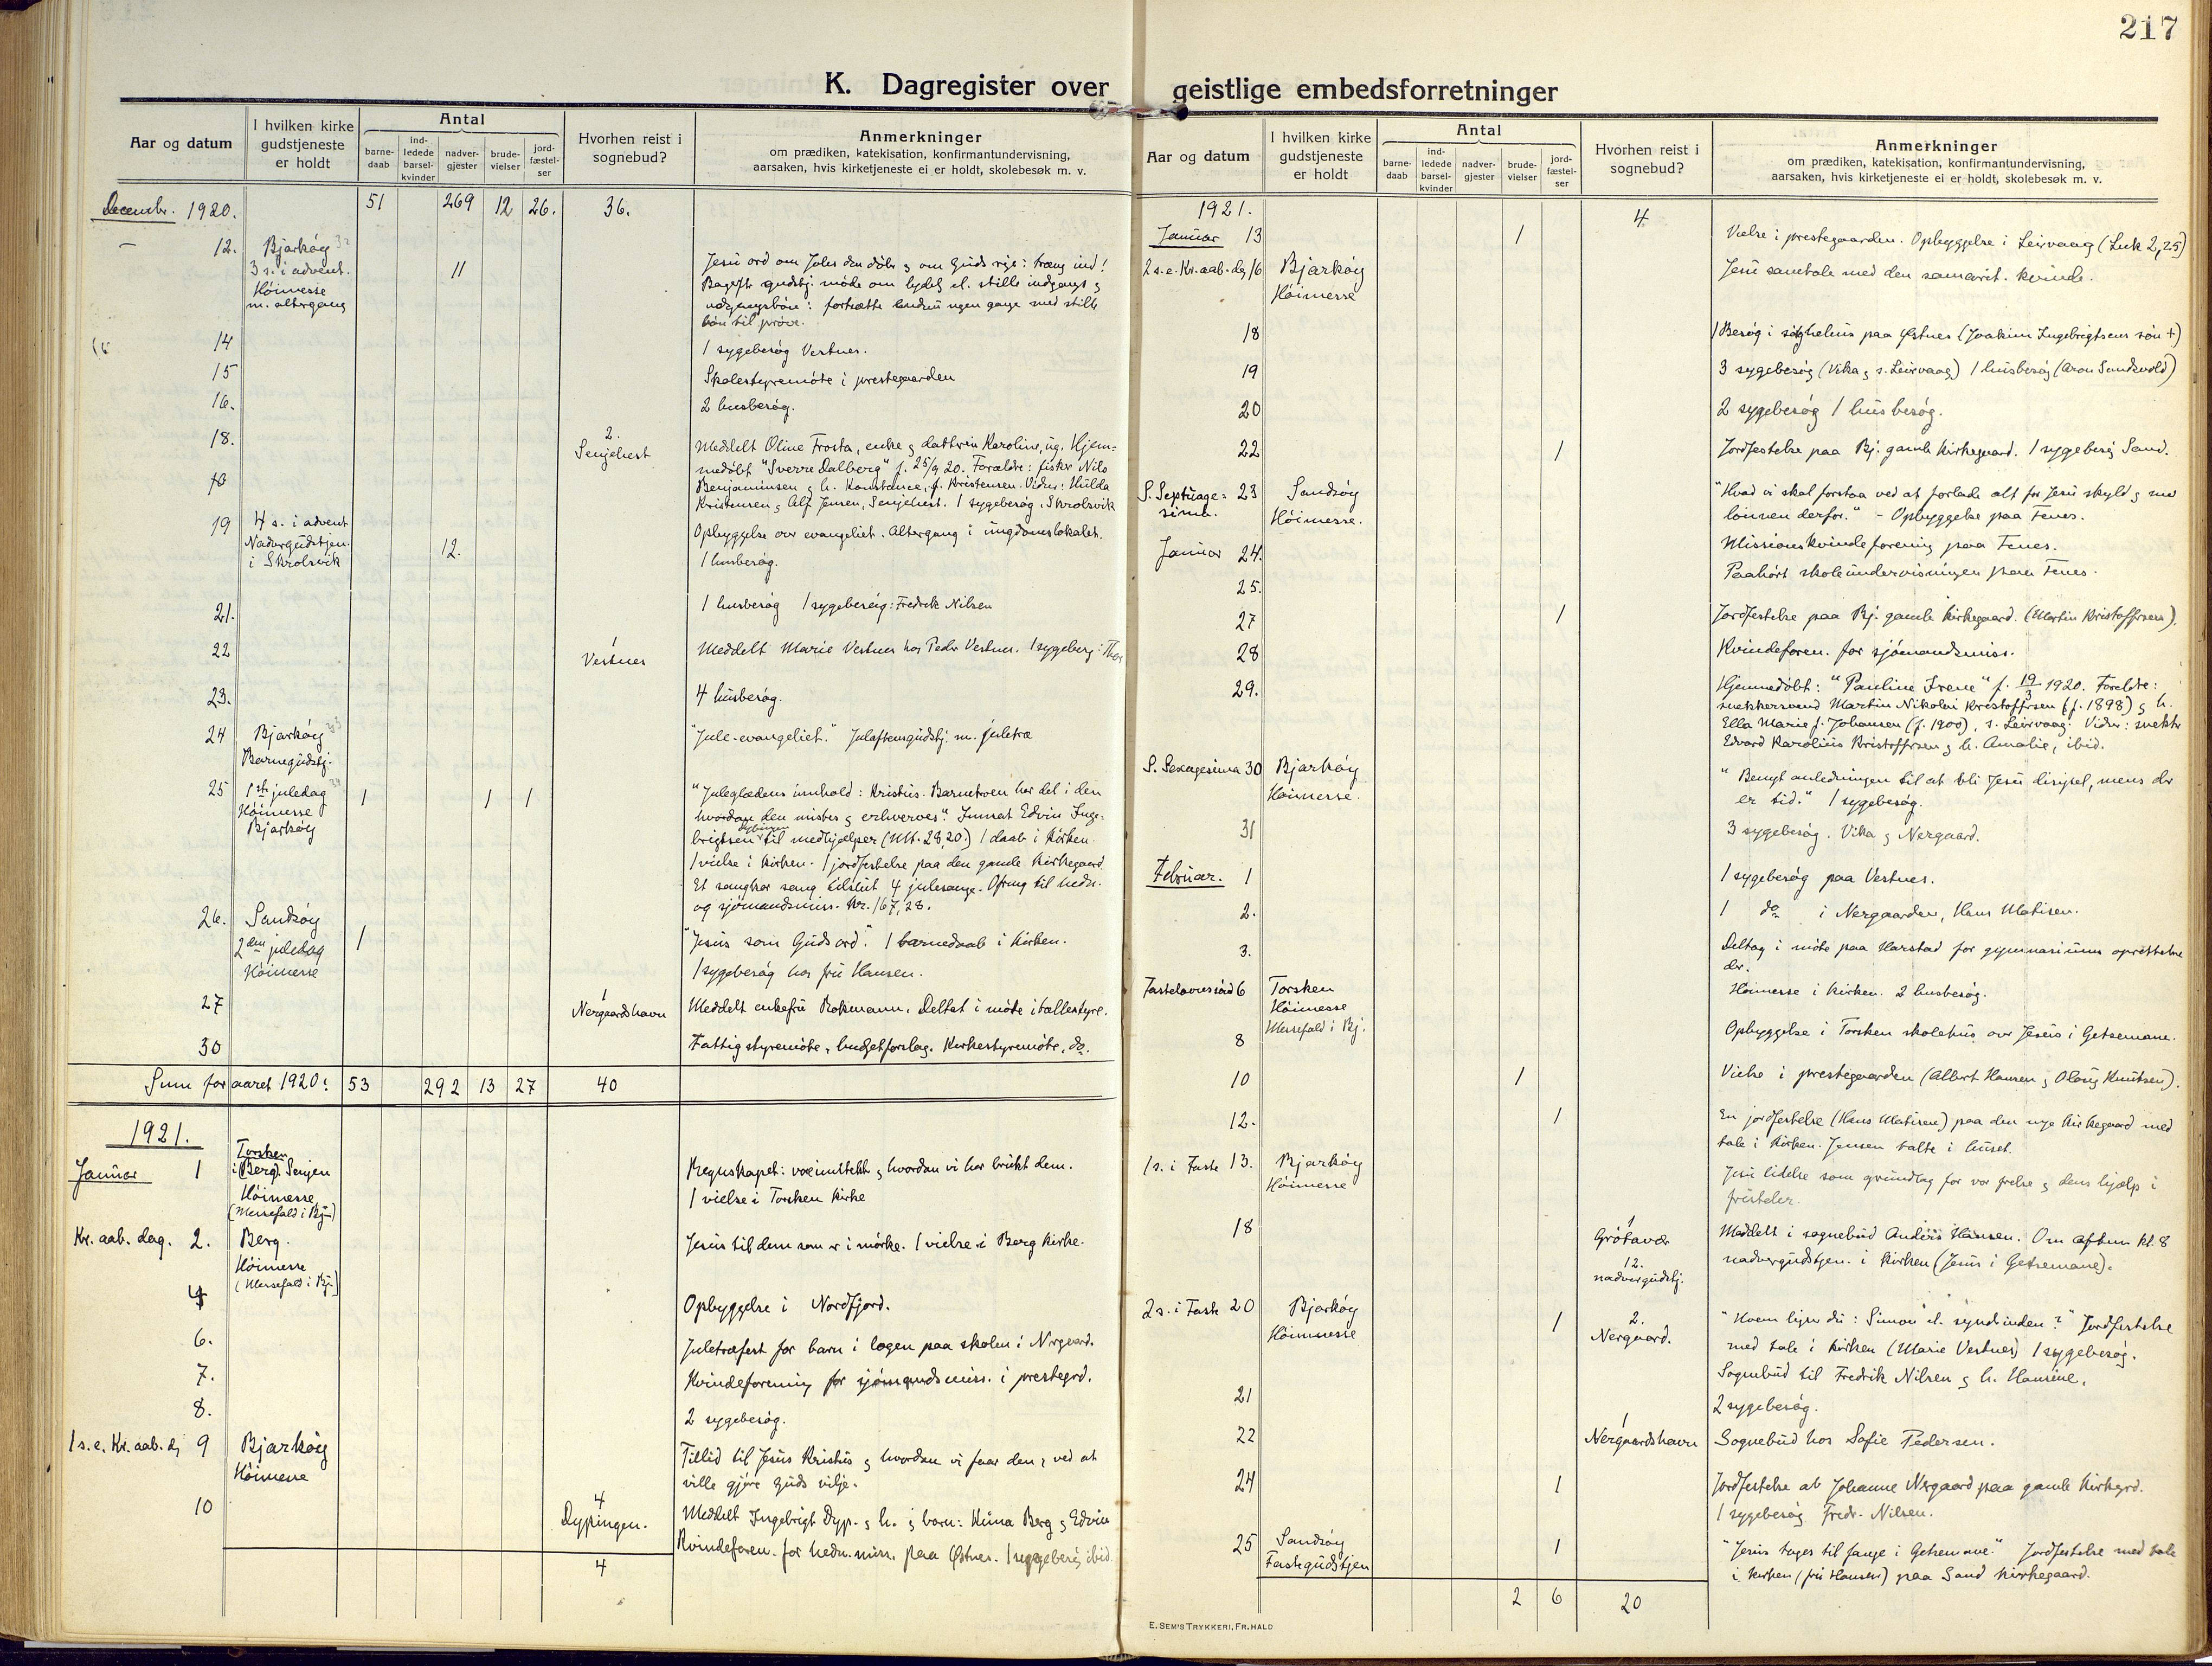 217
K. Dagregister over geistlige embedsforretninger
Aar og datum
I hvilken kirke gudstjeneste er holdt
Antal
barnedaab
indledede barselkvinder
nadvergjester
brudevielser
jordfæstelser
Hvorhen reist i sognebud?
Anmerkninger
om prædiken, katekisation, konfirmantundervisning,
aarsaken, hvis kirketjeneste ei er holdt, skolebesøk m. v.
Decembr. 1920. 51 269 12 26. 36.
— 12. Bjarkøy
3 s. i advent.
Höimesse
m. altergang
11
Jesu ord om Johs den döbr og om Guds rige: træng ind!
Bagefter gudstj. möde om lydelig el. stille indgangs og
udgangsbön: fortsætte endnu nogen gange med stille
bön til pröve.
14 1 sygebesög Vestnes.
15 Skolestyremöte i prestegaarden
16. 2 husbesög.
18. 2.
Senjehest
Meddelt Oline Frosta, enke og datteren Karoline, ug. Hjem-
medöbt "Sverre Dalberg" f. 25/9 20. Forældre: fisker Nils
Benjaminsen og h. Konstance, f. Kristensen. Vidner: Hulda
Kristensen og Alf Jensen, Senjehest. 1 sygebesög. Skrolsvik
19 4 s. i advent
Nadvergudstjen.
i Skrolsvik
12.
Opbyggelse over evangeliet. Altergang i ungdomslokalet.
1 husbesög.
21. 1 husbesög 1 sygebesög: Fredrik Nilsen
22 1
Vestnes
Meddelt Marie Vestnes hos Peder Vestnes. 1 sygebesög:
23. 4 husbesög.
24 Bjarköy
Barnegudstj.
"Jule-evangeliet." Julaftensgudstj. m. juletræ
25 1ste juledag
Höimesse
Bjarköy
1 1 1
"Juleglædens innhold: Kristus. Barnetroen har del i den
hvordan den mistes og erhverves." Innsat Edvin Inge-
brigtsen Dypingen til medhjælper (Mt. 28,20.) 1 daab i Kirken.
1 vielse i Kirken. 1 jordfestelse paa den gamle Kirkegaard.
Et sangkor sang tilslut 4 julesange. Ofring til hedn.
og sjömandsmiss. Kr. 167,28.
26. Sandsöy
2den juledag
Höimesse
1
"Jesus som Guds ord". 1 barnedaab i Kirken.
1 sygebesög hos fru Hansen.
27 1
Nergaardshavn
Meddelt enkefru Rokmann. Deltat i möte i
30 Fattigstyremöte, budgetforslag. Kirkestyremöte, do.
Sum for aaret 1920: 53 292 13 27 40
1921.
Januar 1 Torsken
i (Berg) Senjen
Höimesse
(Messefald i Bj.)
Regnskapet: vor inntekt og hvordan vi har brukt dem.
1 vielse i Torsken Kirke
Kr. aab. dag. 2. Berg.
Höimesse
(Messefald i Bj.)
Jesus til dem som er i mörke. 1 vielse i Berg Kirke.
4 Opbyggelse i Nordfjord.
6. Juletræfest for barn i logen paa skolen i Nergaard.
7. Kvindeforening for sjömandsmiss. i prestegrd.
8. 2 sygebesög.
1 s. e. Kr. aab. d. 9 Bjarköy
Höimesse
Tillid til Jesus Kristus og hvordan vi faar den: ved at
ville gjöre Guds vilje.
10 4
Dypingen.
Meddelt Ingebrigt Dyp. og h. og barn: Kuna Berg og Edvin
Kvindeforen. for hedn. miss. paa Østnes. 1 sygebesög ibid.
4
Aar og datum
I hvilken kirke gudstjeneste er holdt
Antal
barnedaab
indledede barselkvinder
nadvergjester
brudevielser
jordfæstelser
Hvorhen reist i sognebud?
Anmerkninger
om prædiken, katekisation, konfirmantundervisning,
aarsaken, hvis kirketjeneste ei er holdt, skolebesøk m. v.
1921. 4.
Januar 13 1 Vielse i prestegaarden. Opbyggelse i Leirvaag (Luk 2,25)
2 s. e. Kr. aab. dg 16 Bjarköy
Höimesse
Jesu samtale med den samarit. kvinde.
18 1 Besög i sörgehus paa Østnes (Joakim Ingebrigtsens sön +)
19 3 sygebesög (Vika og s. Leirvaag) 1 husbesög (Aron Sandsvold)
20 2 sygebesög 1 husbesög.
22 1 Jordfestelse paa Bj. gamle Kirkegaard. 1 sygebesög Sand.
S. Septuage-
sima. 23 Sandsöy
Höimesse.
"Hvad vi skal forstaa ved at forlade alt for Jesu skyld og med
lönnen derfor." – Opbyggelse paa Fenes.
Januar 24. Missionskvindeforening paa Fenes.
25. Paahört skoleundervisningen paa Fenes.
27 1 Jordfestelse paa Bj. gamle Kirkegaard. (Martin Kristoffersen).
28 Kvindeforen. for sjömandsmiss.
29. Hjemmedöbt: "Pauline Irene" f. 19/3 1920. Foreldre:
snekkersvend Martin Nikolai Kristoffersen (f. 1898) og h.
Ella Marie f. Johansen (f. 1900), s. Leirvaag. Vidner: snekker
Edvard Karolius Kristoffersen og h. Amalie, ibid.
S. Sexagesima 30 Bjarköy
Höimesse.
"Benyt anledningen til at bli Jesu disipel, mens der
er tid." 1 sygebesög.
31 3 sygebesög. Vika og Nergaard.
Februar. 1 1 sygebesög paa Vestnes.
2. 1 do i Nergaarden, Hans Matisen.
3. Deltog i möte paa Harstad for gymnasiums oprettelse
der.
Fastelavnssönd 6 Torsken
Höimesse
Messefald i Bj.
Höimesse i Kirken. 2 husbesög.
8 Opbyggelse i Torsken skolehus over Jesus i Getsemane.
10 1 Vielse i prestegaarden (Albert Hansen og Olaug Knutsen).
12. 1 En jordfestelse (Hans Matisen) paa den nye Kirkegaard med
tale i Kirken. Jensen talte i huset.
1 s. i Faste 13. Bjarköy
Höimesse
Jesu lidelse som grundlag for vor frelse og dens hjælp i
fristelser.
18 1
Grötavær
12.
nadvergudstj.
Meddelt i sognebud Anders Hansen. Om aftenen kl. 8
nadvergudstjen. i Kirken (Jesus i Getsemane).
2 s. i Faste 20 Bjarköy
Höimmesse
1 2.
Nergaard.
"Hvem ligner du: Simon el. synderinden?" Jordfestelse
med tale i Kirken (Marie Vestnes) 1 sygebesög.
Sognebud til Fredrik Nilsen og h. Hansine.
21 2 sygebesög.
22 1
Nergaardshavn
Sognebud hos Sofie Pedersen.
24 1 Jordfestelse at Johanne Nergaard paa gamle Kirkegrd.
1 sygebesög Fredr. Nilsen.
25 Sandsöy
Fastegudstjen
1 "Jesus tages til fange i Getsemane." Jordfestelse med tale
i Kirken (fru Hansen) paa Sand Kirkegaard.
2 6 20
E. SEM'S TRYKKERI, FR.HALD